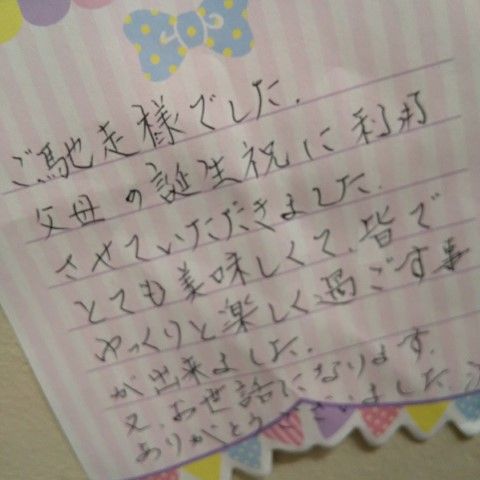 ご馳走様でした.
父母の誕生祝に利用
させていただきました.
とても美味しくて、皆で
ゆっくりと楽しく過ごす事
が出来ました.
又、お世話になります.
ありがとうございました